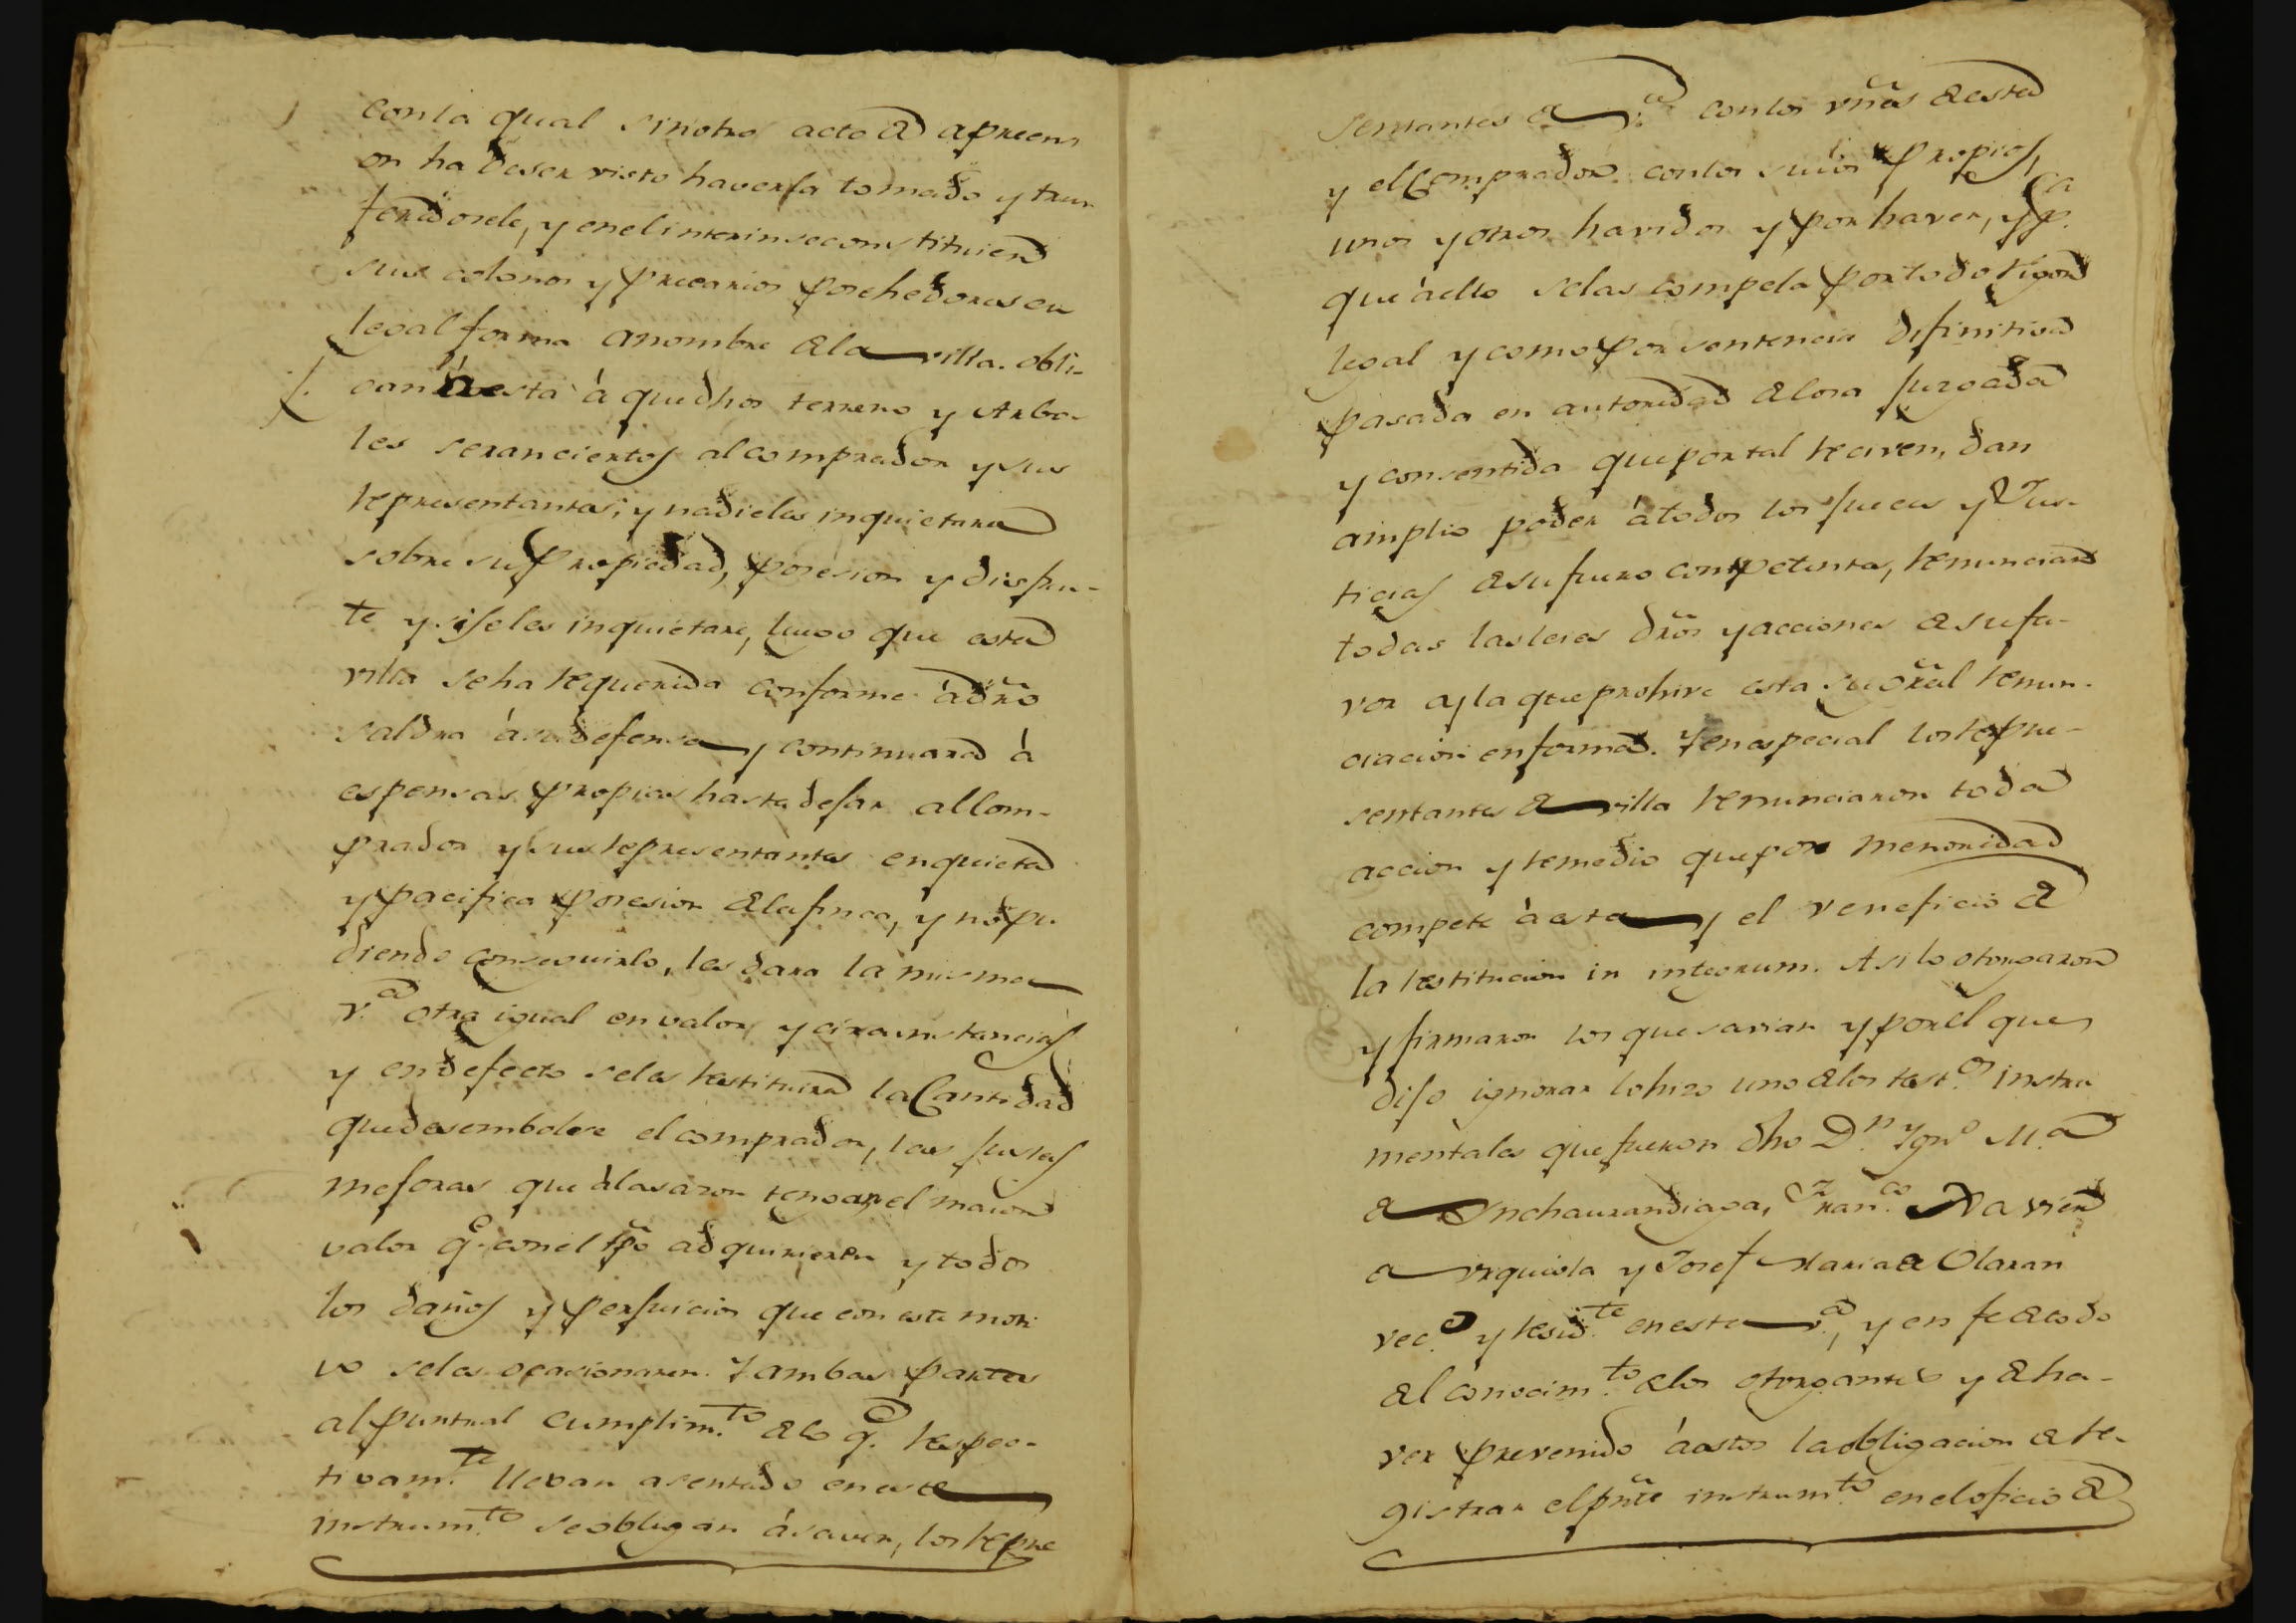 con la qual sin otro acto de apreens
on ha de ser visto haverla tomado y trans
feradosele, y en el interin se constituien
sus colonos y precarios posehedores en
legal forma a nombre de la villa. obli-
gan a esta à que dhos terreno y Arbo-
les seran ciertos al comprador y sus
representantes; y nadie les inquietara
sobre su Propiedad, posesion y disfru-
te y si se les inquietare, luego que esta
villa se ha requerida conforme à dro
saldra à su defensa y continuara à
espensas propias hasta dejar al Com-
prador y sus representantes en quieta
y pacifica posesion de la finca, y no pu
diendo conseguirlo, les dara la misma
v.ª otra igual en valor y circunstancias
y en defecto se les restituira la Cantidad
que desembolse el comprador, las justas
mejoras que à la sazon tengan el maior
valor q.e con el tpo adquiriere y todos
los daños y perjuicios que con este moti
vo se les ocasionaren. Y ambas partes
al puntual cumplim.to de lo q.e respec-
tivam.te llevan asentado en este
instrum.to se obligan à saver, los repre
sentantes de v.ª con los vnes de esta
y el Comprador con los suios Propios,
unos y otros havidos y por haver, y p.ª
que à ello se las compela por todo rigor
legal y como por sentencia difinitiva
pasada en autoridad de cosa juzgada
y consentida que por tal reciven, dan
amplio poder à todos los jueces y Jus-
ticias de su fuero competentes, renuncian
todas las leies dros y acciones de su fa-
vor y la que prohive esta gral renun-
ciacion en forma. Y en especial los repre-
sentantes de villa renunciaron toda
accion y remedio que por menoridad
compete à esta y el veneficio de
la restitucion in integrum. Asi lo otorgaron
y firmaron los que savian y por el que
dijo ignorar lo hizo uno de los test.os instru
mentales que fueron dho D.n Ygn.o M.ª
de Inchaurandiaga, Fran.co Xavier
de Urquiola y Josef Maria de Olaran
vec.o y resid.te en esta v.ª, y en fe de todo
del conocim.to de los otorgantes y de ha-
ver prevenido à estos la obligacion de re-
gistrar el pnte instrum.to en el oficio de